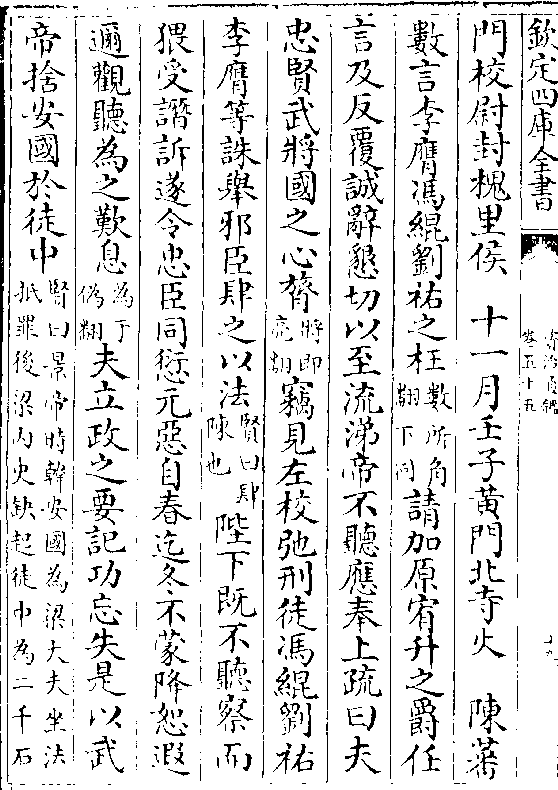 欽定四庫全書
資治通鑑
卷五十五
十九
門校尉封槐里侯　十一月壬子黃門北寺火　陳蕃
數言李膺馮緄劉祐之枉數所角翻下同請加原宥升之爵任
言及反覆誠辭懇切以至流涕帝不聽應奉上疏曰夫
忠賢武將國之心膂將即亮翻竊見左校弛刑徒馮緄劉祐
李膺等誅舉邪臣肆之以法賢曰肆陳也陛下既不聽察而
猥受譖訴遂令忠臣同愆元惡自春迄冬不蒙降恕遐
邇觀聽為之歎息為于偽翻夫立政之要記功忘失是以武
帝捨安國於徒中賢曰景帝時韓安國為梁大夫坐法抵罪後梁內史缺起徒中為二千石